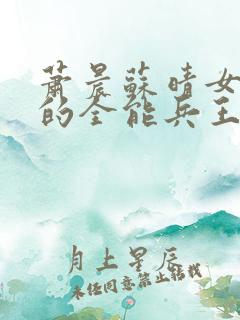 萧晨蘇晴女
的全能兵王
月上星辰
未经同意禁止转载